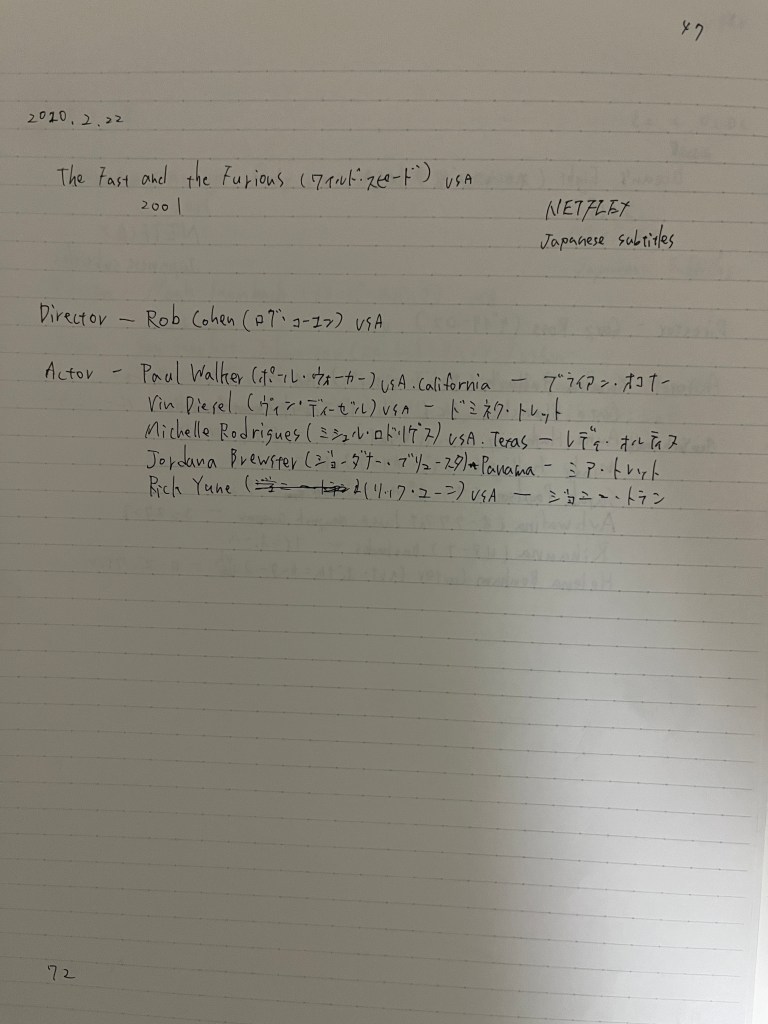 47
2020.2.22
The Fast and the Furious (ワイルド・スピード) USA
2001
NETFLIX
Japanese subtitles
Director - Rob Cohen (ロブ・コーエン) USA
Actor - Paul Walker (ポール・ウォーカー) USA.California - ブライアン・オコナー
Vin Diesel (ヴィン・ディーゼル) USA - ドミニク・トレット
Michelle Rodrigues (ミシェル・ロドリゲス) USA.Texas - レティ・オルティス
Jordana Brewster (ジョーダナ・ブリュースター) Panama - ミア・トレット
Rich Yune (リック・ユーン) USA - ジョニー・トラン
72